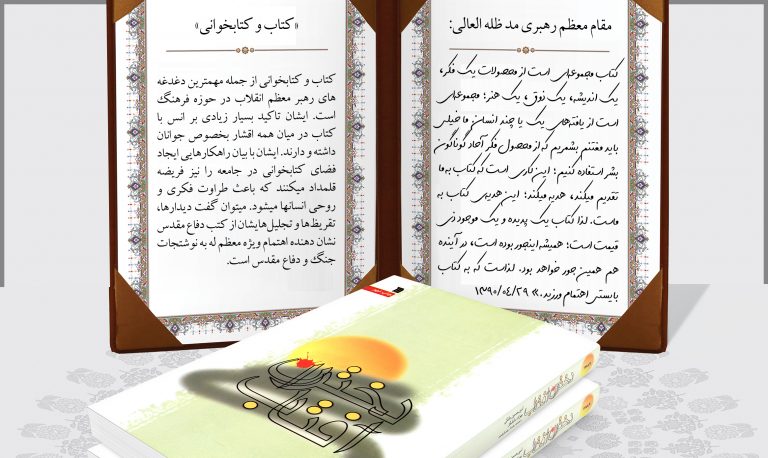 مقام معظم رهبری مد ظله العالی:
کتاب مجموعه‌ای است از محصولات یک فکر،
یک اندیشه، یک ذوق، یک هنر؛ مجموعه‌ای
است از یافته‌های یک یا چند انسان. ما خیلی
باید مغتنم بشمریم که از محصول فکر آحاد گوناگون
بشر استفاده کنیم؛ این کاری است که کتاب به ما
تقدیم میکند، هدیه میکند؛ این هدیه‌ی کتاب به
ماست. لذا کتاب یک پدیده و یک موجود ذی
قیمت است؛ همیشه اینجور بوده است، در آینده
هم همین جور خواهد بود. لذاست که به کتاب
بایستی اهتمام ورزید.» ۱۳۹۰/۰۴/۲۹
«کتاب و کتابخوانی»
کتاب و کتابخوانی از جمله مهمترین دغدغه
های رهبر معظم انقلاب در حوزه فرهنگ
است. ایشان تاکید بسیار زیادی بر انس با
کتاب در میان همه اقشار بخصوص جوانان
داشته و دارند. ایشان با بیان راهکارهایی ایجاد
فضای کتابخوانی در جامعه را نیز فریضه
قلمداد میکنند که باعث طراوت فکری و
روحی انسانها میشود. میتوان گفت دیدارها،
تقریظ‌ها و تجلیل‌هایشان از کتب دفاع مقدس
نشان دهنده اهتمام ویژه معظم له به نوشتجات
جنگ و دفاع مقدس است.